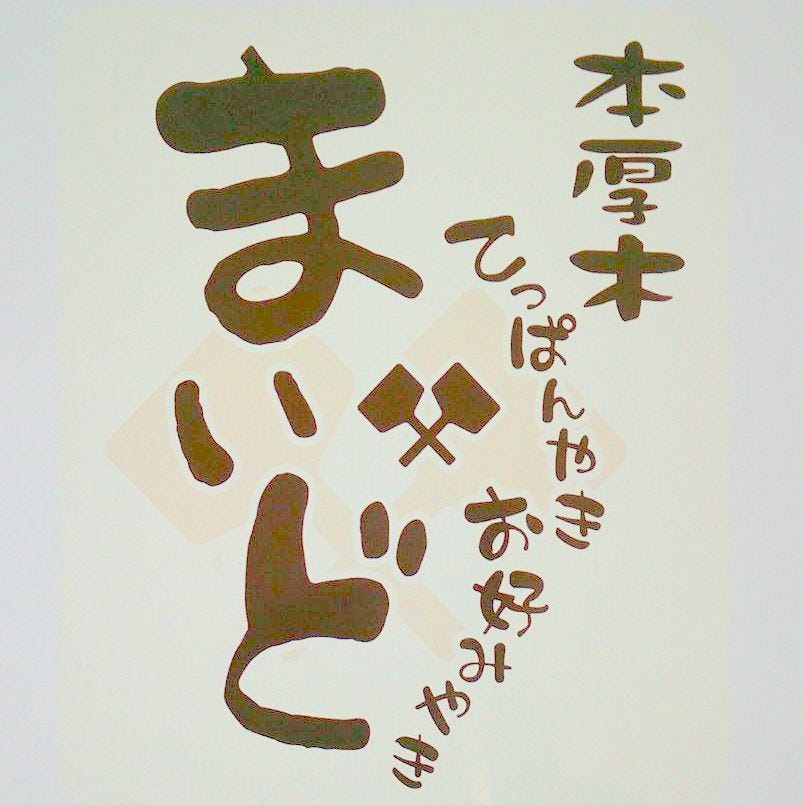 本厚木
てっぱんやき
お好みやき
まいど